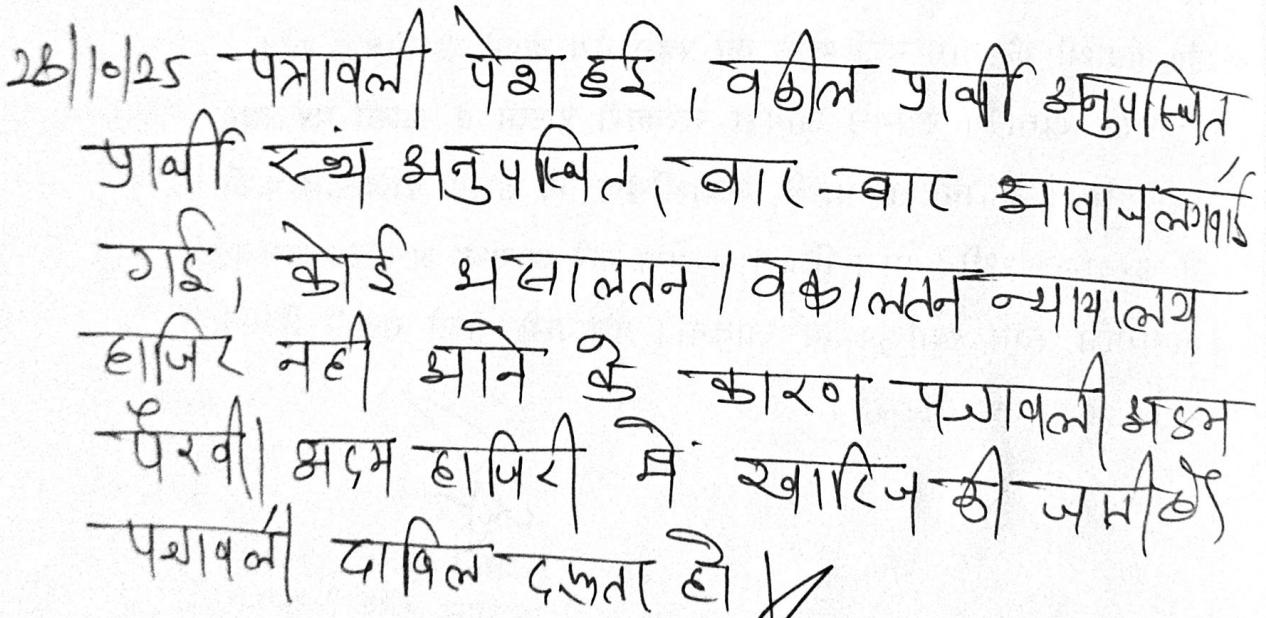 28/10/25 पत्रावली पेश हुई, वकील प्रार्थी अनुपस्थित
प्रार्थी स्वयं अनुपस्थित, बार-बार आवाज लगवाई
गई, कोई असालतन/वकालतन न्यायालय
हाजिर नही आने के कारण पत्रावली अदम
पैरवी/अदम हाजिरी में खारिज की जाती है।
पत्रावली दाखिल दफ्तर हो।